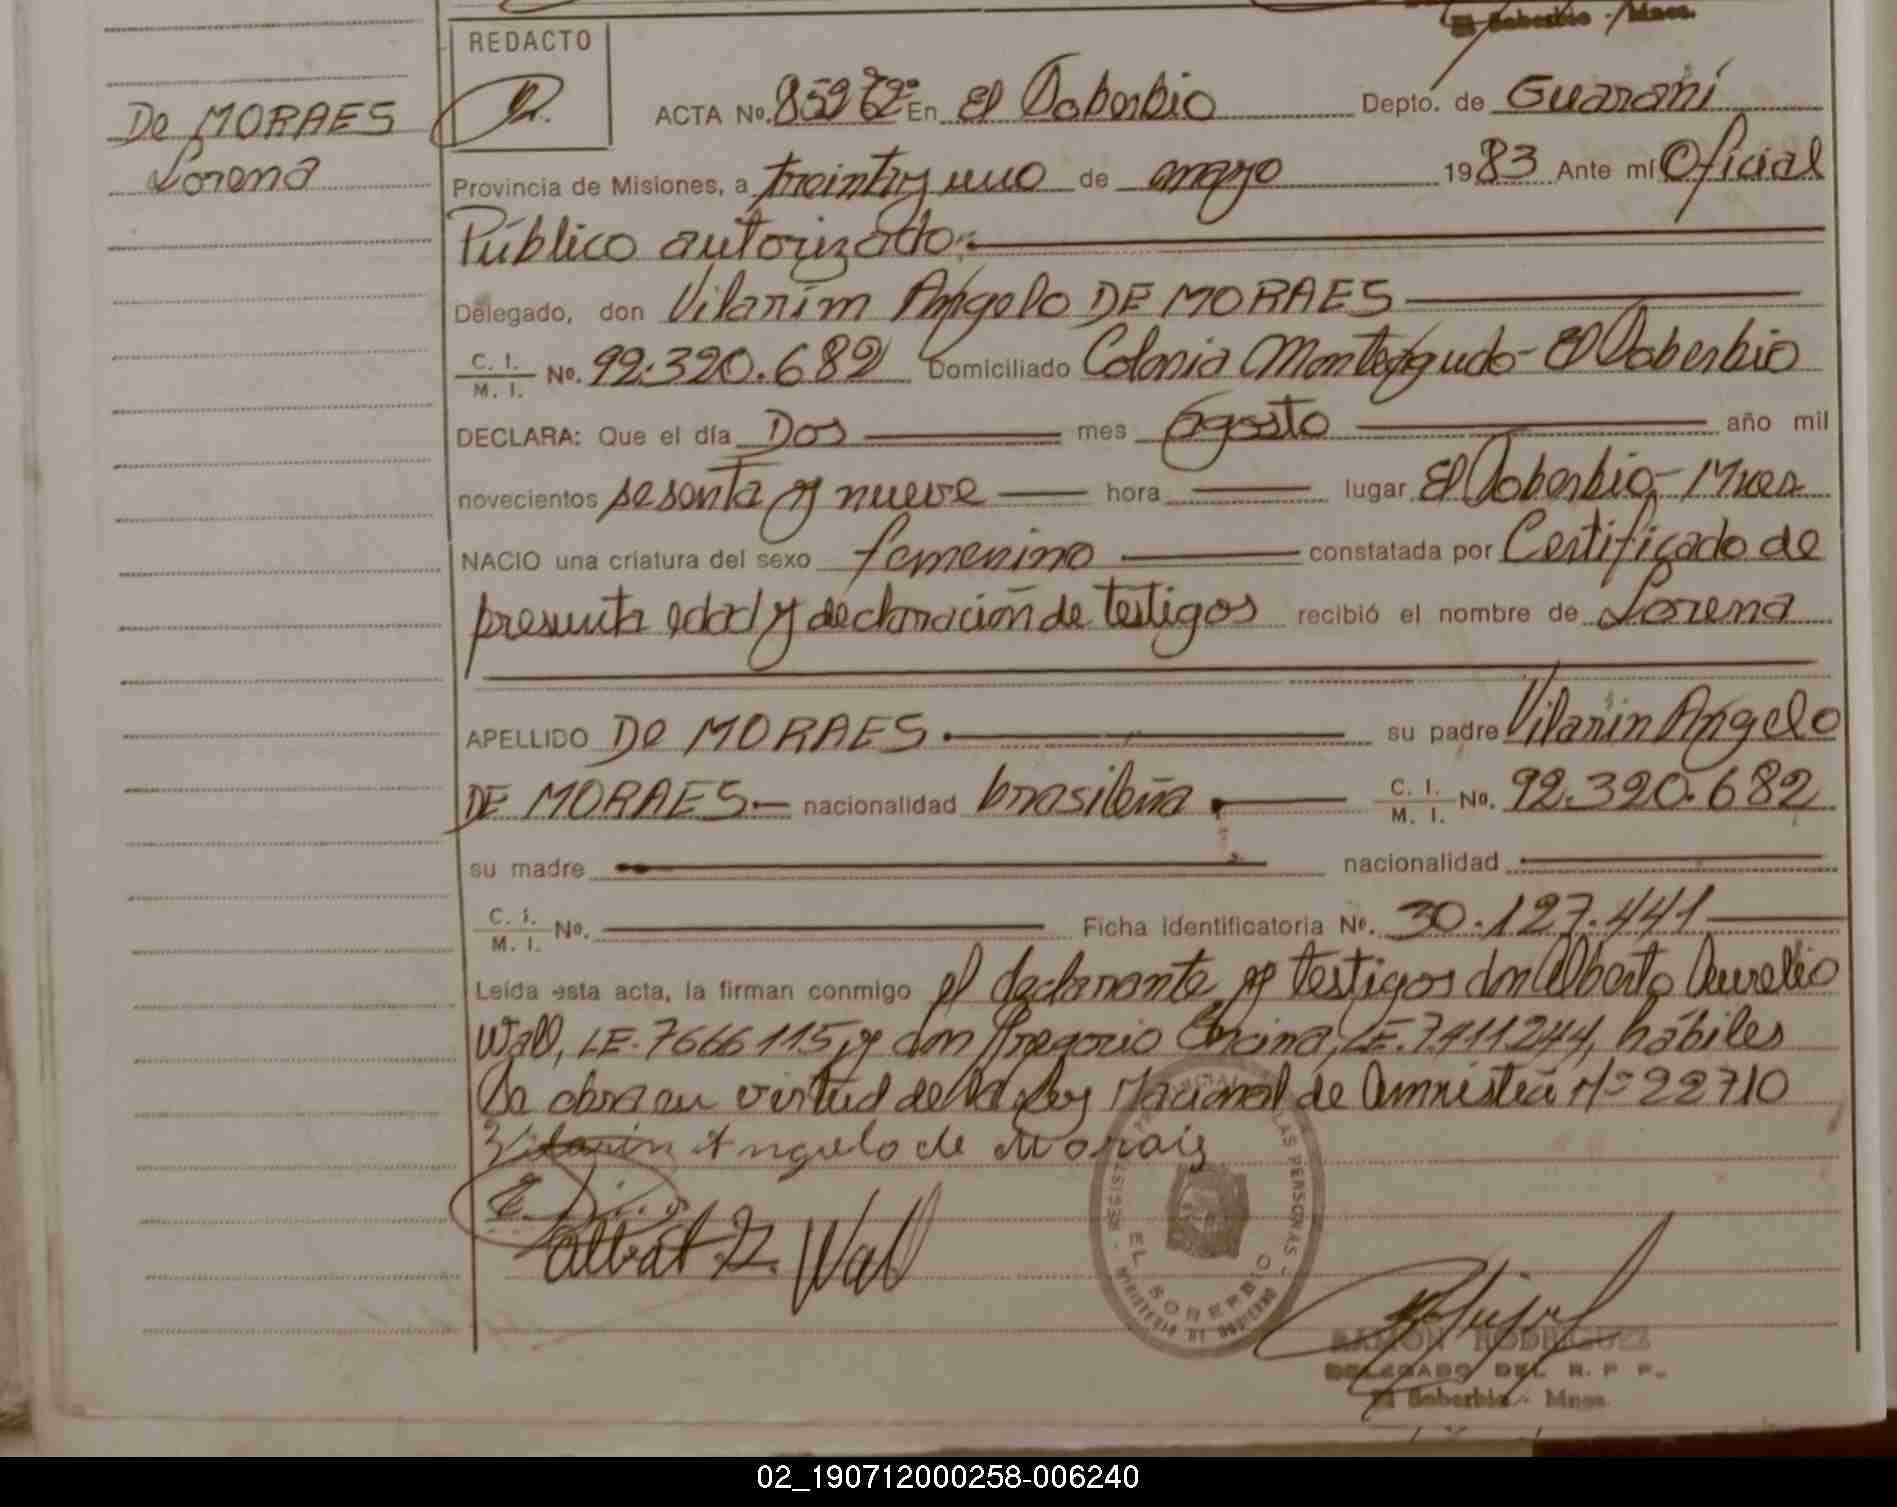 El Soberbio - Mnes.
REDACTO
De MORAES
Lorena
ACTA Nº. En El Soberbio Depto. de Guaraní
Provincia de Misiones, a treinta y uno de mayo 1983 Ante mí Oficial
Público autorizado.-
Delegado, don Vilarim Angelo DE MORAES
C. I. / M. I. Nº. 92.320.682 Domiciliado Colonia Monteagudo - El Soberbio
DECLARA: Que el día Dos mes agosto año mil
novecientos sesenta y nueve hora lugar El Soberbio - Mnes
NACIO una criatura del sexo femenino constatada por Certificado de
presunta edad y declaración de testigos recibió el nombre de Lorena
APELLIDO De MORAES su padre Vilarin Angelo
DE MORAES.- nacionalidad brasileña C. I. / M. I. Nº. 92.320.682
su madre nacionalidad
C. I. / M. I. Nº. Ficha identificatoria Nº. 30.127.441
Leída esta acta, la firman conmigo el declarante y testigos don Alberto Aurelio
Wall, LE. 7666115, y don Gregorio Encina, LE. 7.411244, hábiles
Se obra en virtud de la Ley Nacional de Amnistía Nº 22710
Vilarin Angelo de Morais
Albert A. Wall
EL SOBERBIO
MINISTERIO DE GOBIERNO
LAS PERSONAS
RAMON RODRIGUEZ
DELEGADO DEL R. P. P.
El Soberbio - Mnes.
02_190712000258-006240